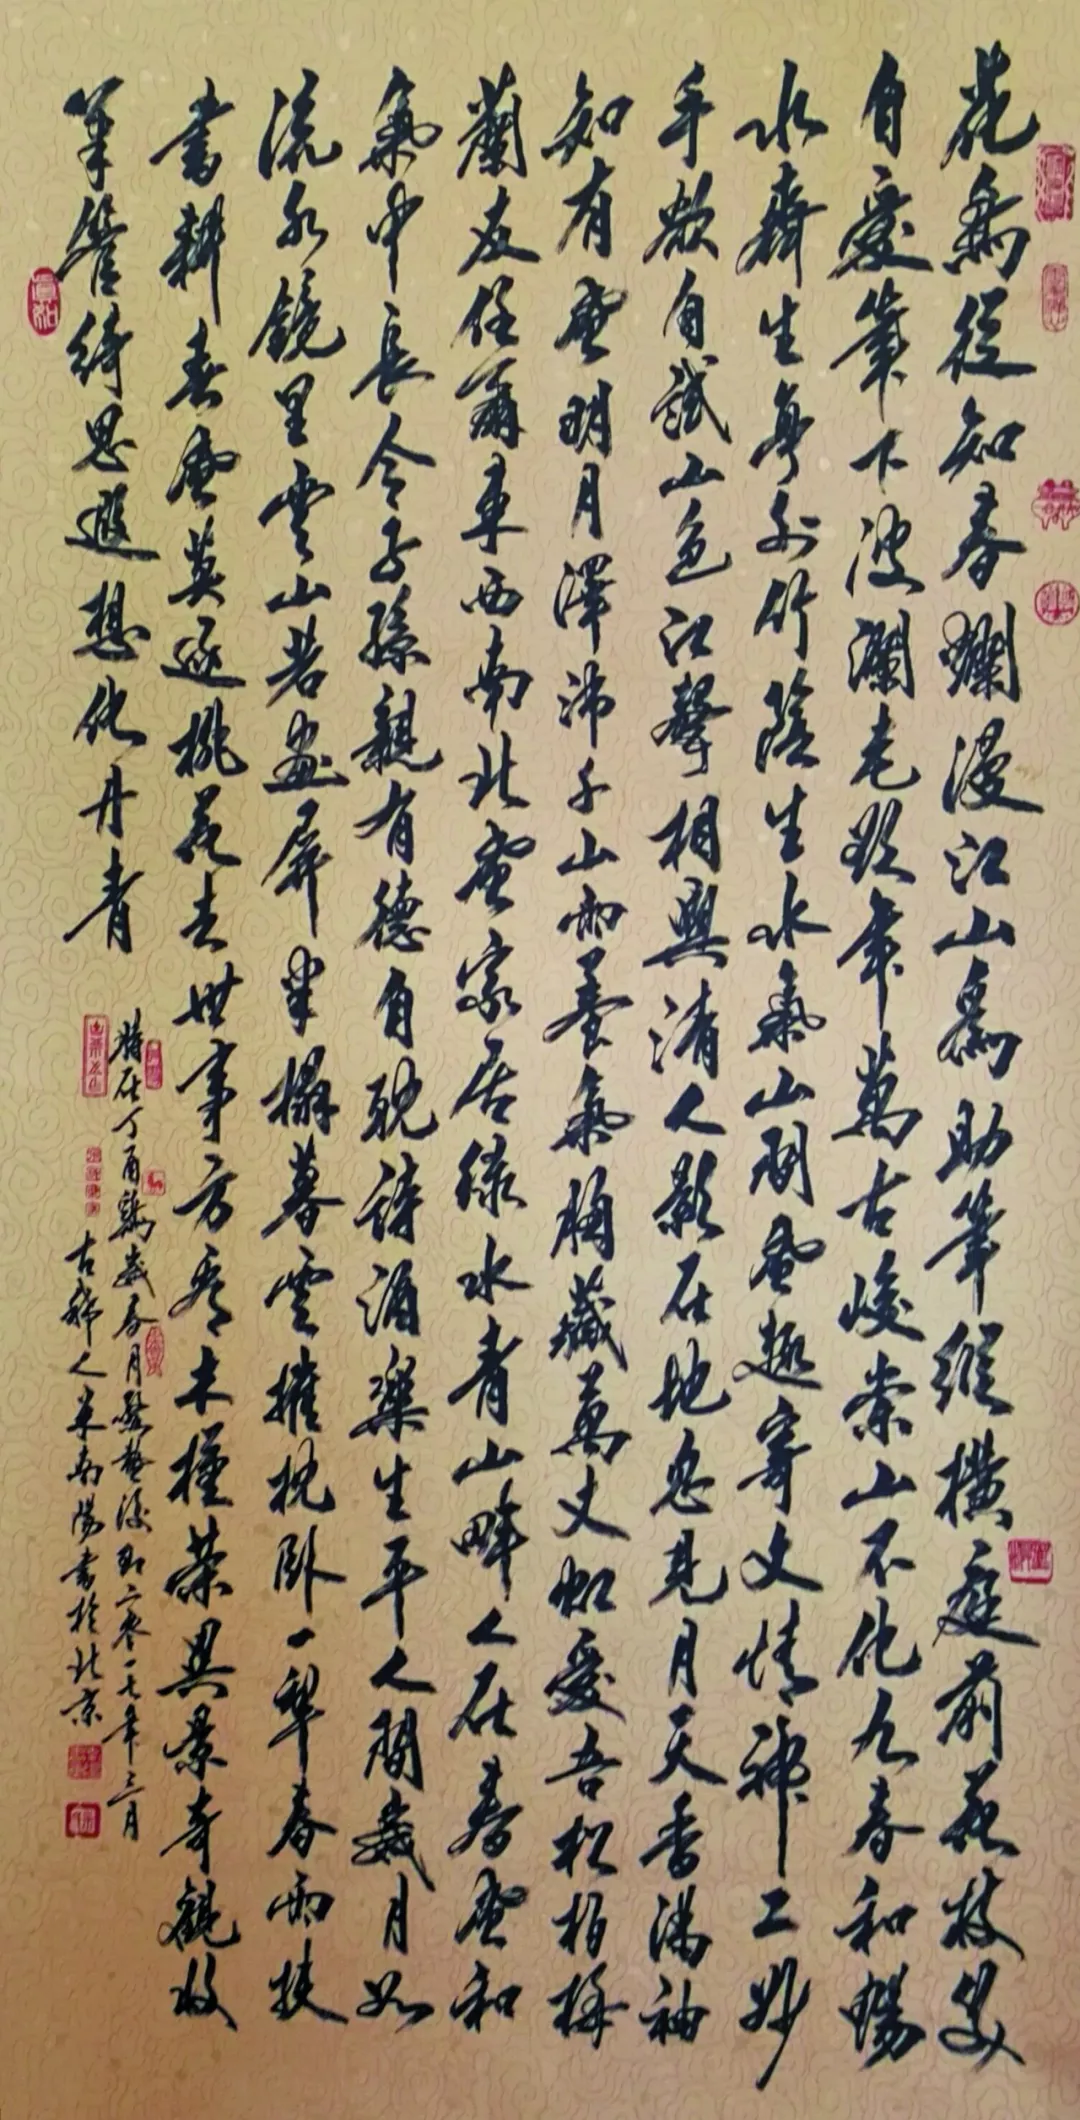 花無從知春斕漫江山為助筆縱橫庭前花枝
自愛筆下波瀾老年萬古峻崇山不化九春和暢
水齊生亭外竹陰生水氣山間風趣寄文情神工妙
手欲自試山色江聲相與清人影在地忽見月天香滿袖
知有風明月澤沛千山雨養氣胸藏萬丈虹愛吾松柏梅
蘭友任爾東西南北風家居綠水青山畔人在春風和
氣中長令子孫親有德自耽詩酒樂生平人間歲月如
流水鏡里雲山若畫屏半榻暮雲推枕臥一犁春雨扶
書耕春風莫逐桃花去世事方看木槿榮異景奇觀收
筆管綺思遐想化丹青
時在丁酉鷄歲春月驚蟄後即二零一七年三月
古稀人米南陽書於北京